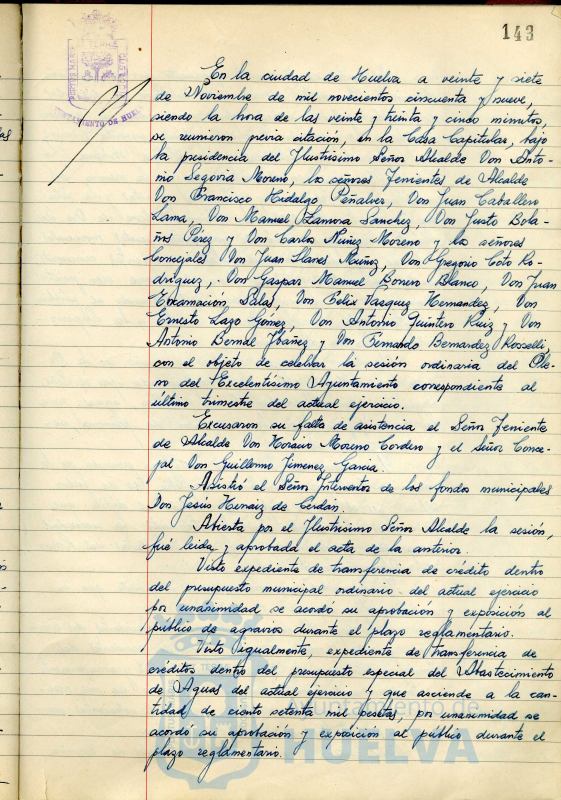 143
En la ciudad de Huelva a veinte y siete
de Noviembre de mil novecientos cincuenta y nueve,
siendo la hora de las veinte y treinta y cinco minutos,
se reunieron previa citación, en la Casa Capitular, bajo
la presidencia del Ilustrísimo Señor Alcalde Don Anto-
nio Segovia Moreno, los señores Tenientes de Alcalde
Don Francisco Hidalgo Peñalver, Don Juan Caballero
Lama, Don Manuel Zamora Sanchez, Don Justo Bola-
ños Pérez y Don Carlos Núñez Moreno y los señores
Concejales Don Juan Llanes Muñoz, Don Gregorio Coto Ro-
dríguez, Don Gaspar Manuel Borrero Blanco, Don Juan
Encarnación Salas, Don Felix Vazquez Hernandez, Don
Ernesto Lazo Gómez, Don Antonio Quintero Ruiz y Don
Antonio Bernal Ibáñez y Don Fernando Bernardez Rosselli,
con el objeto de celebrar la sesión ordinaria del Ple-
no del Excelentísimo Ayuntamiento correspondiente al
último trimestre del actual ejercicio.
Excusaron su falta de asistencia el Señor Teniente
de Alcalde Don Horacio Moreno Cordero y el Señor Conce-
jal Don Guillermo Jimenez Garcia.
Asistió el Señor Interventor de los fondos municipales
Don Jesús Hernáiz de Cerdán.
Abierta por el Ilustrisimo Señor Alcalde la sesión,
fué leida y aprobada el acta de la anterior.
Visto expediente de transferencia de crédito dentro
del presupuesto municipal ordinario del actual ejercicio
por unanimidad se acordó su aprobación y exposición al
público de agravios durante el plazo reglamentario.
Visto igualmente, expediente de transferencia de
créditos dentro del presupuesto especial del Abastecimiento
de Aguas del actual ejercicio y que asciende a la can-
tidad de ciento setenta mil pesetas, por unanimidad se
acordó su aprobación y exposición al público durante el
plazo reglamentario.
Ayuntamiento de
HUELVA